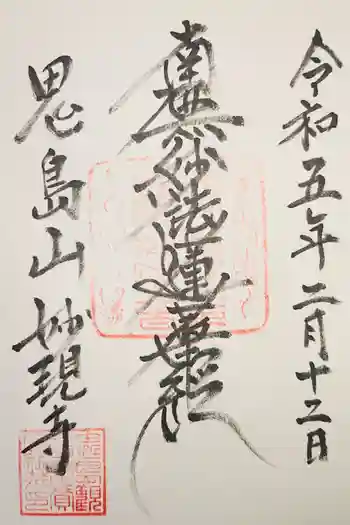 令和五年二月十二日
南無妙法蓮華経
思島山 妙現寺